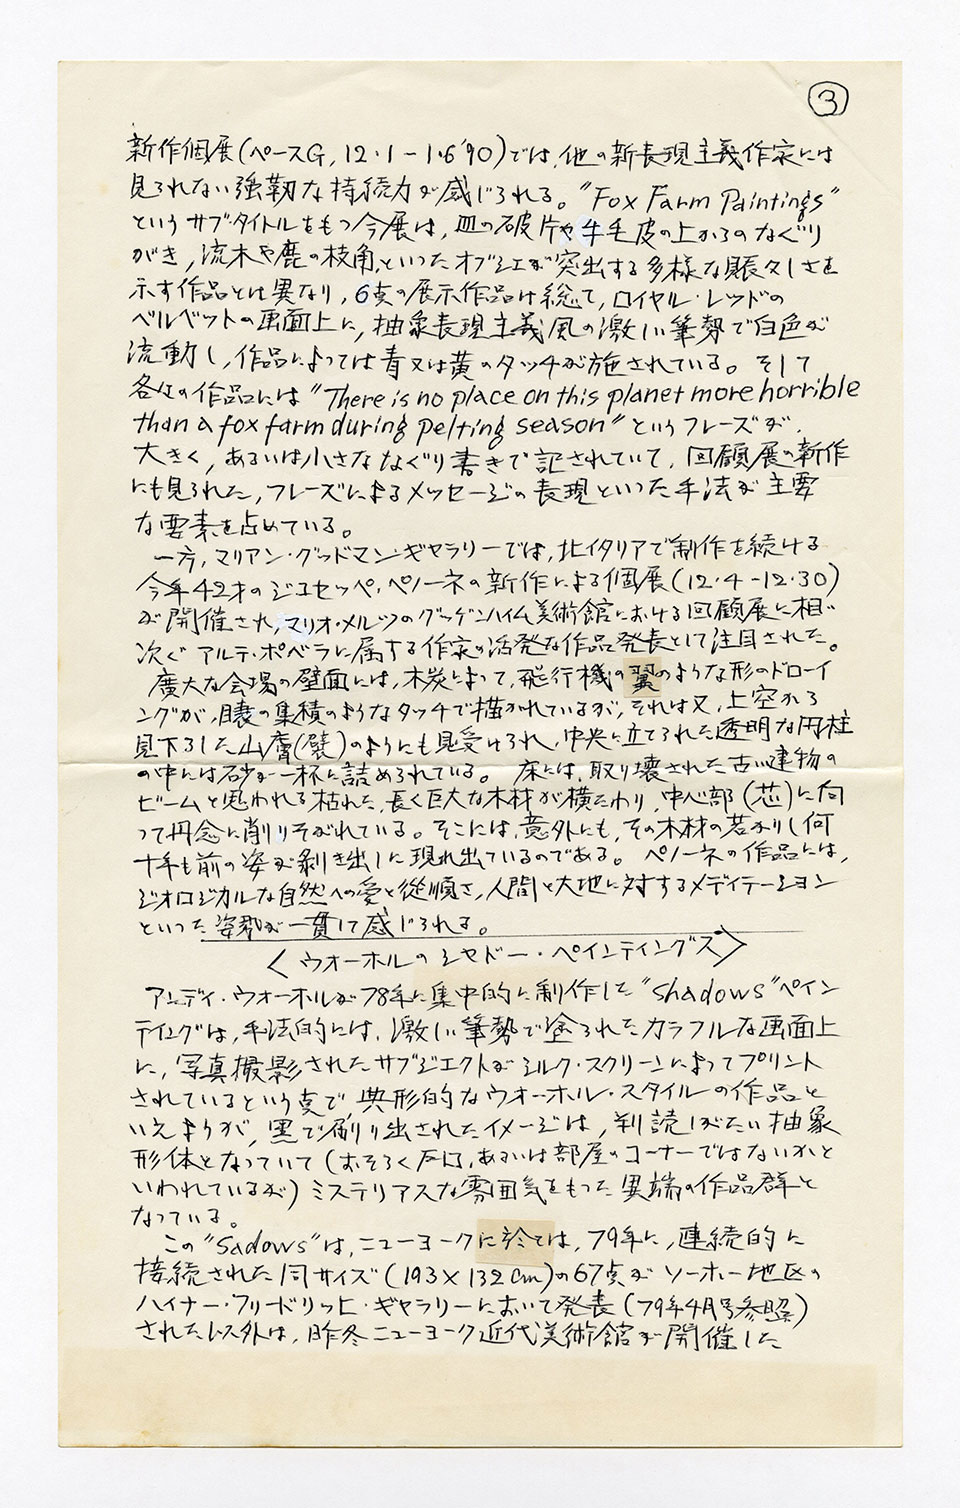 ③
新作個展(ペースG, 12・1－1・6'90)では,他の新表現主義作家には
見られない強靭な持続力が感じられる。"Fox Farm Paintings"
というサブ・タイトルをもつ今展は, 皿の破片や牛毛皮の上からのなぐり
がき, 流木や鹿の枝角,といったオブジェが突出する多様な賑々しさを
示す作品とは異なり, 6点の展示作品は総て, ロイヤル・レッドの
ベルベットの画面上に, 抽象表現主義風の激しい筆勢で白色が
流動し, 作品によっては青又は黄のタッチが施されている。そして
各々の作品には"There is no place on this planet more horrible
than a fox farm during pelting season"というフレーズが,
大きく, あるいは小さななぐり書きで記されていて, 回顧展の新作
にも見られた, フレーズによるメッセージの表現といった手法が主要
な要素を占めている。
一方, マリアン・グッドマンギャラリーでは, 北イタリアで制作を続ける
今年42才のジュセッペ・ペノーネの新作による個展(12・4－12・30)
が開催され, マリオ・メルツのグッゲンハイム美術館における回顧展に相
次ぐアルテ・ポベラに属する作家の活発な作品発表として注目された。
廣大な会場の壁面には, 木炭によって, 飛行機の翼のような形のドローイ
ングが, 襞の集積のようなタッチで描かれているが, それは又, 上空から
見下ろした山膚(襞)のようにも見受けられ, 中央に立てられた透明な円柱
の中には砂が一杯に詰められている。床には, 取り壊された古い建物の
ビームと思われる枯れた, 長く巨大な木材が横たわり, 中心部(芯)に向
って丹念に削りそがれている。そこには, 意外にも, その木材の若かりし何
十年も前の姿が剥き出しに現れ出ているのである。ペノーネの作品には,
ジオロジカルな自然への愛と従順さ, 人間と大地に対するメディテーション
といった姿勢が一貫して感じられる。
〈ウオーホルのシャドー・ペインティングス〉
アンディ・ウオーホルが78年に集中的に制作した"Shadows"ペイン
ティングは, 手法的には, 激しい筆勢で塗られたカラフルな画面上
に, 写真撮影されたサブジェクトがシルク・スクリーンによってプリント
されているという点で, 典形的なウオーホル・スタイルの作品と
いえようが, 黒で刷り出されたイメージは, 判読しがたい抽象
形体となっていて(おそらく戸口, あるいは部屋のコーナーではないかと
いわれているが)ミステリアスな雰囲気をもった異端の作品群と
なっている。
この"Sadows"は, ニューヨークに於ては, 79年に, 連続的に
接続された同サイズ(193×132cm)の67点がソーホー地区の
ハイナー・フリードリッヒ・ギャラリーにおいて発表(79年4月号参照)
された以外は, 昨冬ニューヨーク近代美術館が開催した